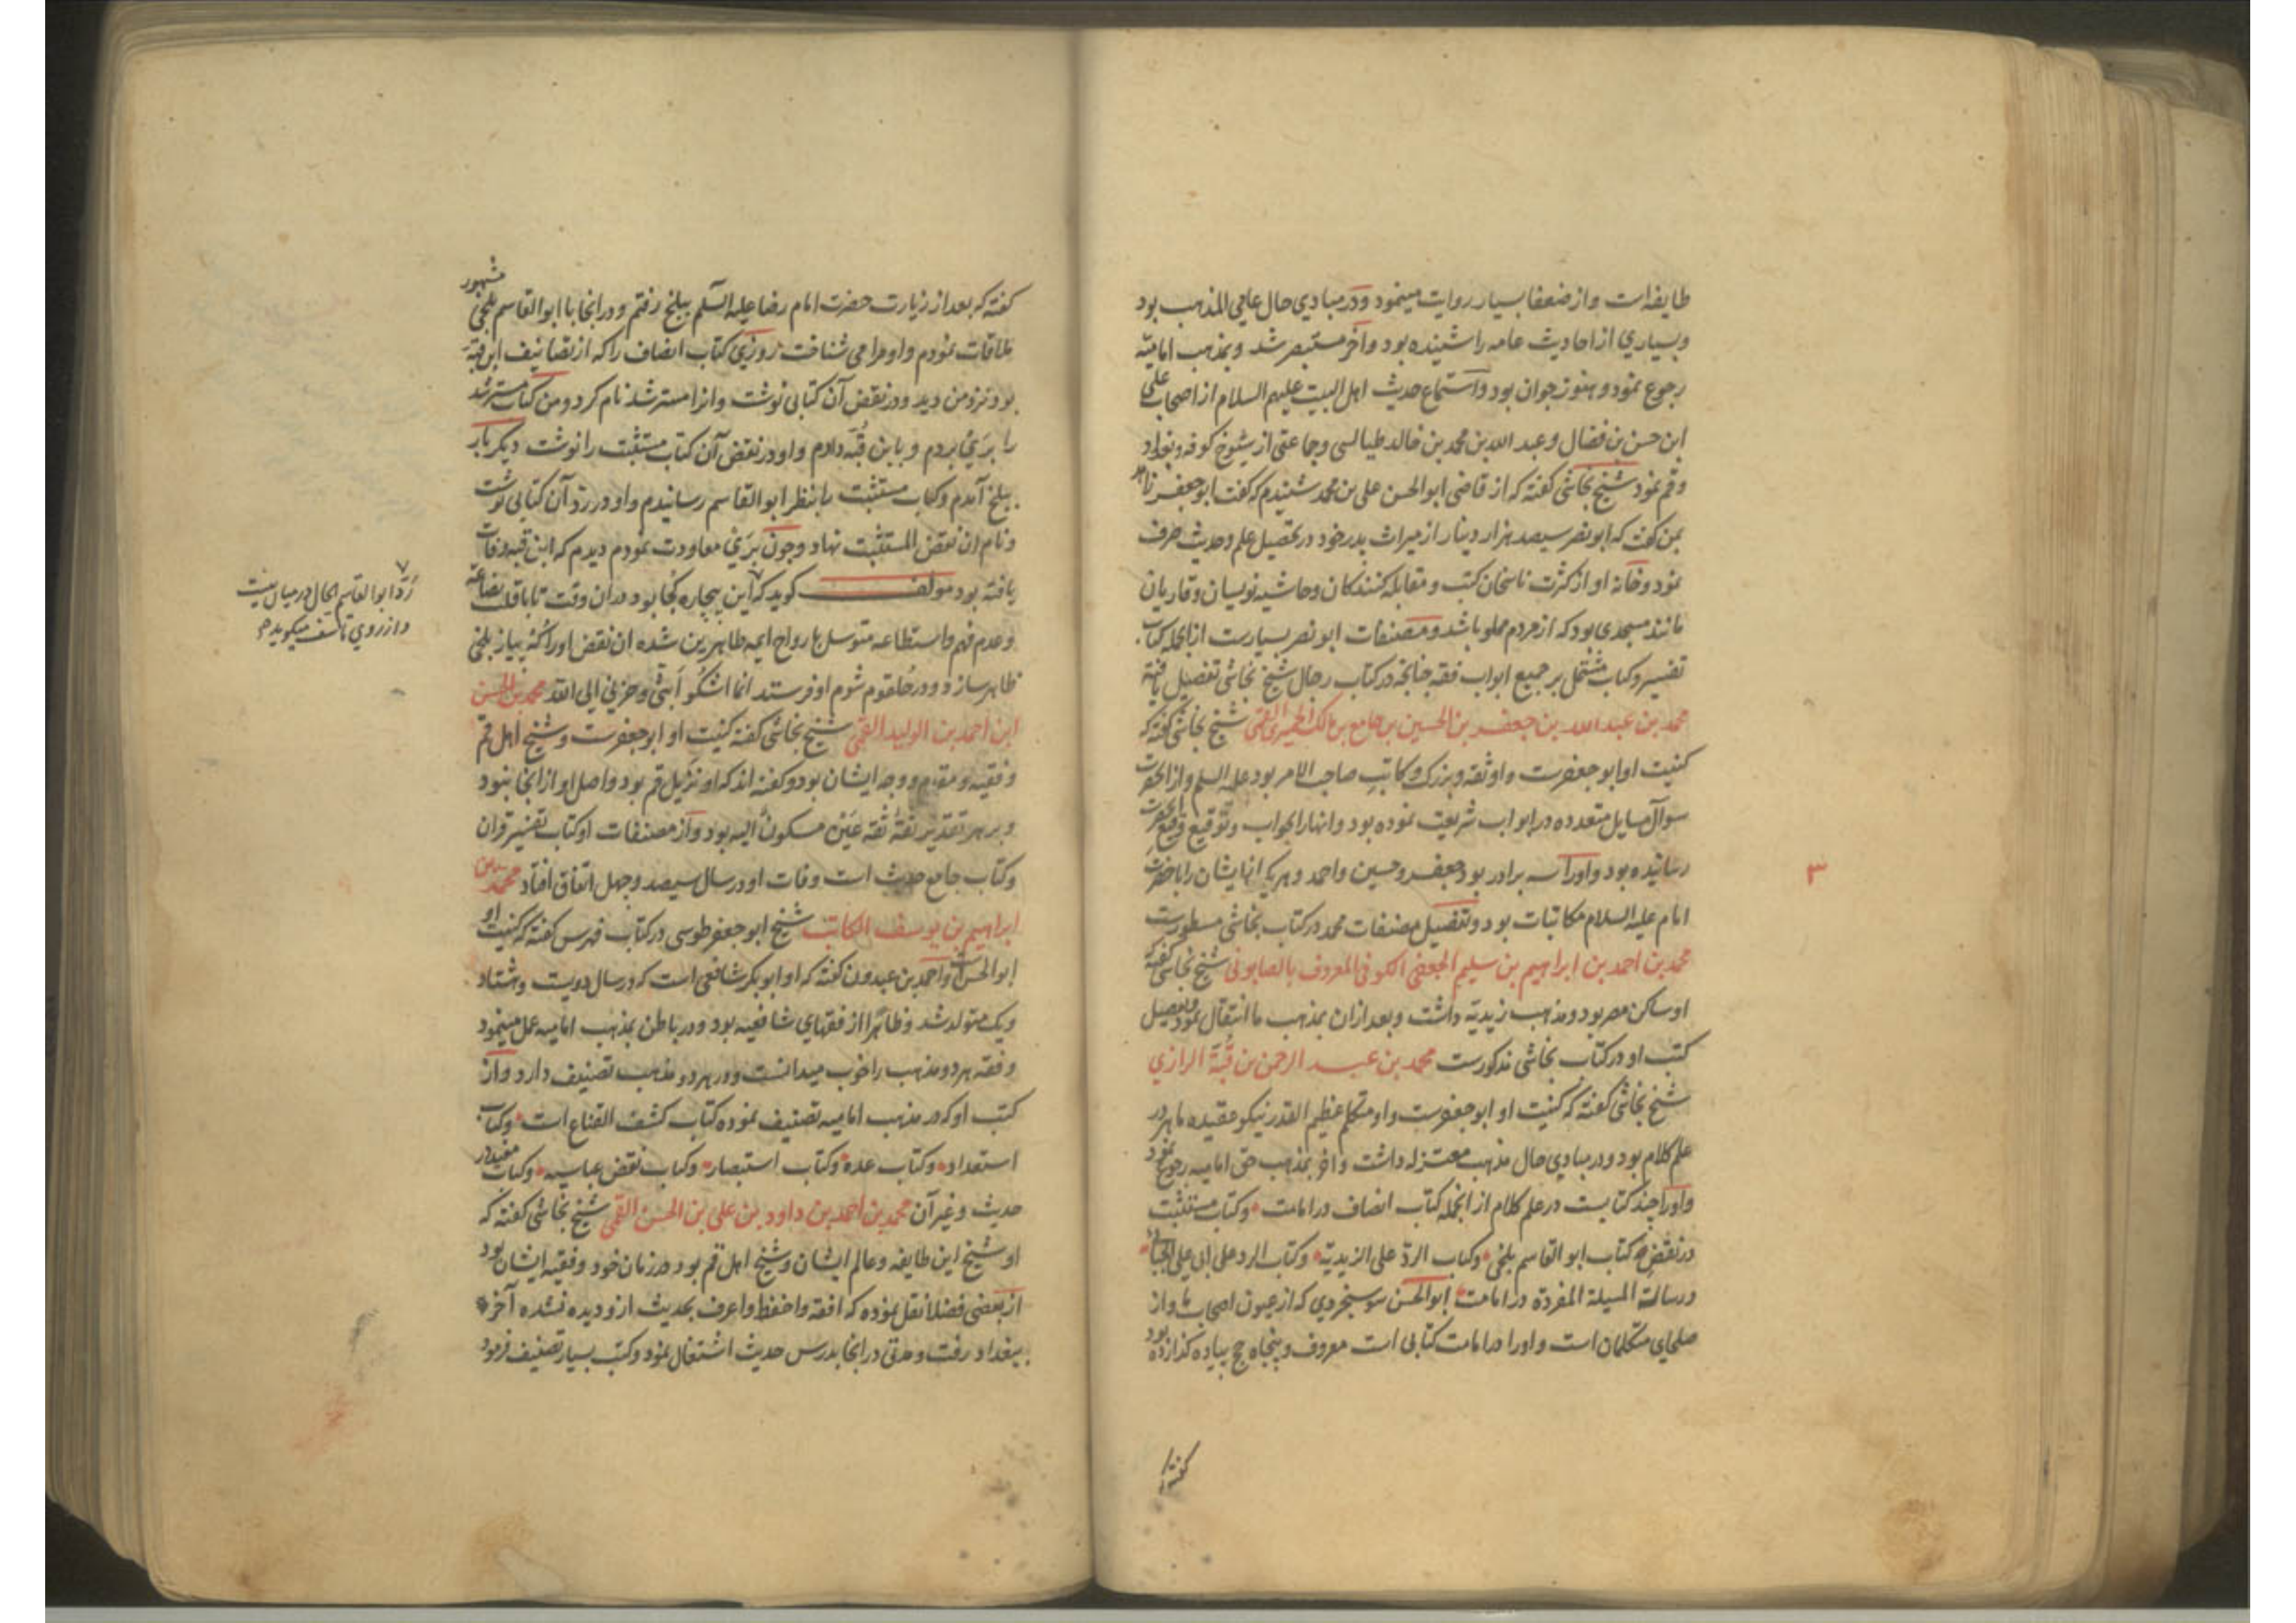 طایفه است و از ضعفا بسیار روایت مینمود و در مبادی حال عامی المذهب بود
و بسیاری از احادیث عامه را شنیده بود و آخر مستبصر شد و بمذهب امامیّه
رجوع نمود و هنوز جوان بود و استماع حدیث اهل البیت علیهم السلام از اصحاب علی
ابن حسن بن فضال و عبد الله بن محمد بن خالد طیالسی و جماعتی از شیوخ کوفه و بغداد
و قم نمود شیخ نجاشی گفته که از قاضی ابو الحسن علی بن محمد شنیدم که گفت ابو جعفر زاهد
بمن گفت که ابو نصر سیصد هزار دینار از میراث پدر خود در تحصیل علم و حدیث صرف
نمود و خانه او از کثرت ناسخان کتب و مقابله کنندگان و حاشیه نویسان و قاریان
مانند مسجدی بود که از مردم مملو باشد و مصنفات ابو نصر بسیارست از انجمله کتاب
تفسیر و کتاب مشتمل بر جمیع ابواب فقه چنانچه در کتاب رجال شیخ نجاشی تفصیل یافته
محمد بن عبد الله بن جعفر بن الحسین بن جامع بن مالک الحمیری القمی شیخ نجاشی گفته که
کنیت او ابو جعفرست و او ثقه و بزرگ و کاتب صاحب الامر بود علیه السلم و از انحضرت
سوال مسایل متعدده در ابواب شریعت نموده بود و انها را بجواب و توقیع رفیع انحضرت
رسانیده بود و او را سه برادر بود جعفر و حسین و احمد و هر یک از ایشان را با حضرت
امام علیه السلام مکاتبات بود و تفصیل مصنفات محمد در کتاب نجاشی مسطورست
محمد بن احمد بن ابراهیم بن سلیم الجعفی الکوفی المعروف بالصابونی شیخ نجاشی گفته
او ساکن مصر بود و مذهب زیدیّه داشت و بعد ازان بمذهب ما انتقال نمود و تفصیل
کتب او در کتاب نجاشی مذکورست محمد بن عبد الرحمن بن قُبَّة الرازی
شیخ نجاشی گفته که کنیت او ابو جعفرست و او متکلم عظیم القدر نیکو عقیده ماهر در
علم کلام بود و در مبادی حال مذهب معتزله داشت و اخر بمذهب حق امامیه رجوع نمود
و او را چند کتابیست در علم کلام از انجمله کتاب انصاف در امامت و کتاب مستثبت
در نقض کتاب ابو القاسم بلخی و کتاب الردّ علی الزیدیّه و کتاب الرد علی ابی علی الجبائی
و رسالة المسیلة المفردة در امامت ابو الحسن سوسنجردی که از عیون اصحاب ما و از
صلحای متکلمان است و او را در امامت کتابی است معروف و پنجاه حج پیاده گذارده بود
گفته که بعد از زیارت حضرت امام رضا علیه السّلم ببلخ رفتم و در انجا با ابو القاسم بلخی مشهور
ملاقات نمودم و او مرا می شناخت روزی کتاب انصاف را که از تصانیف ابن قبّه
بود نزد من دید و در نقض آن کتابی نوشت و انرا مسترشد نام کرد و من کتاب مسترشد
را برَی بردم و بابن قُبّه دادم و او در نقض آن کتاب مستثبت را نوشت دیگر بار
ببلخ آمدم و کتاب مستثبت را بنظر ابو القاسم رسانیدم و او در رد آن کتابی نوشت
و نام ان نقض المستثبت نهاد و چون برَی معاودت نمودم دیدم که ابن قبه وفات
یافته بود مولف گوید که این بیچاره کجا بود دران وقت تا با قلت بضاعه
و عدم فهم و استطاعه متوسل بارواح ایمه طاهرین شده ان نقض او را کنه پیاز بلخی
ظاهر سازد و در حلقوم شوم او فرستد انما اشکُو بَثی و حزنی الی الله محمد بن الحسن
ابن احمد بن الولید القمی شیخ نجاشی گفته کنیت او ابو جعفرست و شیخ اهل قم
و فقیه و مقدم و وجه ایشان بود و گفته اند که او نزیل قم بود و اصل او از انجا نبود
و بر هر تقدیر ثقهٌ ثقه عَین مسکونٌ الیه بود و از مصنفات او کتاب تفسیر قران
و کتاب جامع حدیث است وفات او در سال سیصد و چهل اتفاق افتاد محمد بن
ابراهیم بن یوسف الکاتب شیخ ابو جعفر طوسی در کتاب فهرس گفته که کنیت او
ابو الحسن است و احمد بن عبدون گفته که او ابو بکر شافعی است که در سال دویست و هشتاد
و یک متولد شد و ظاهرا از فقهای شافعیه بود و در باطن بمذهب امامیه عمل مینمود
و فقه هر دو مذهب را خوب میدانست و در هر دو مذهب تصنیف دارد و از
کتب او که در مذهب امامیه تصنیف نموده کتاب کشف القناع است و کتاب
استعداد و کتاب عده و کتاب استبصار و کتاب نقض عباسیه و کتاب مفید در
حدیث و غیر آن محمد بن احمد بن داود بن علی بن الحسن القمی شیخ نجاشی گفته که
او شیخ این طایفه و عالم ایشان و شیخ اهل قم بود در زمان خود و فقیه ایشان بود
از بعضی فضلا نقل نموده که افقه و احفظ و اعرف بحدیث ازو دیده نشده آخر
ببغداد رفت و مدتی در انجا بدرس حدیث اشتغال نمود و کتب بسیار تصنیف فرمود
رَدّ ابو القاسم الحال در میان نیست
و از روی تاسف میگوید
۳